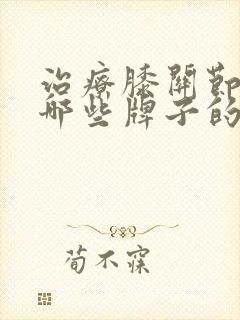 治療膝關節
哪些牌子的
荀不寐